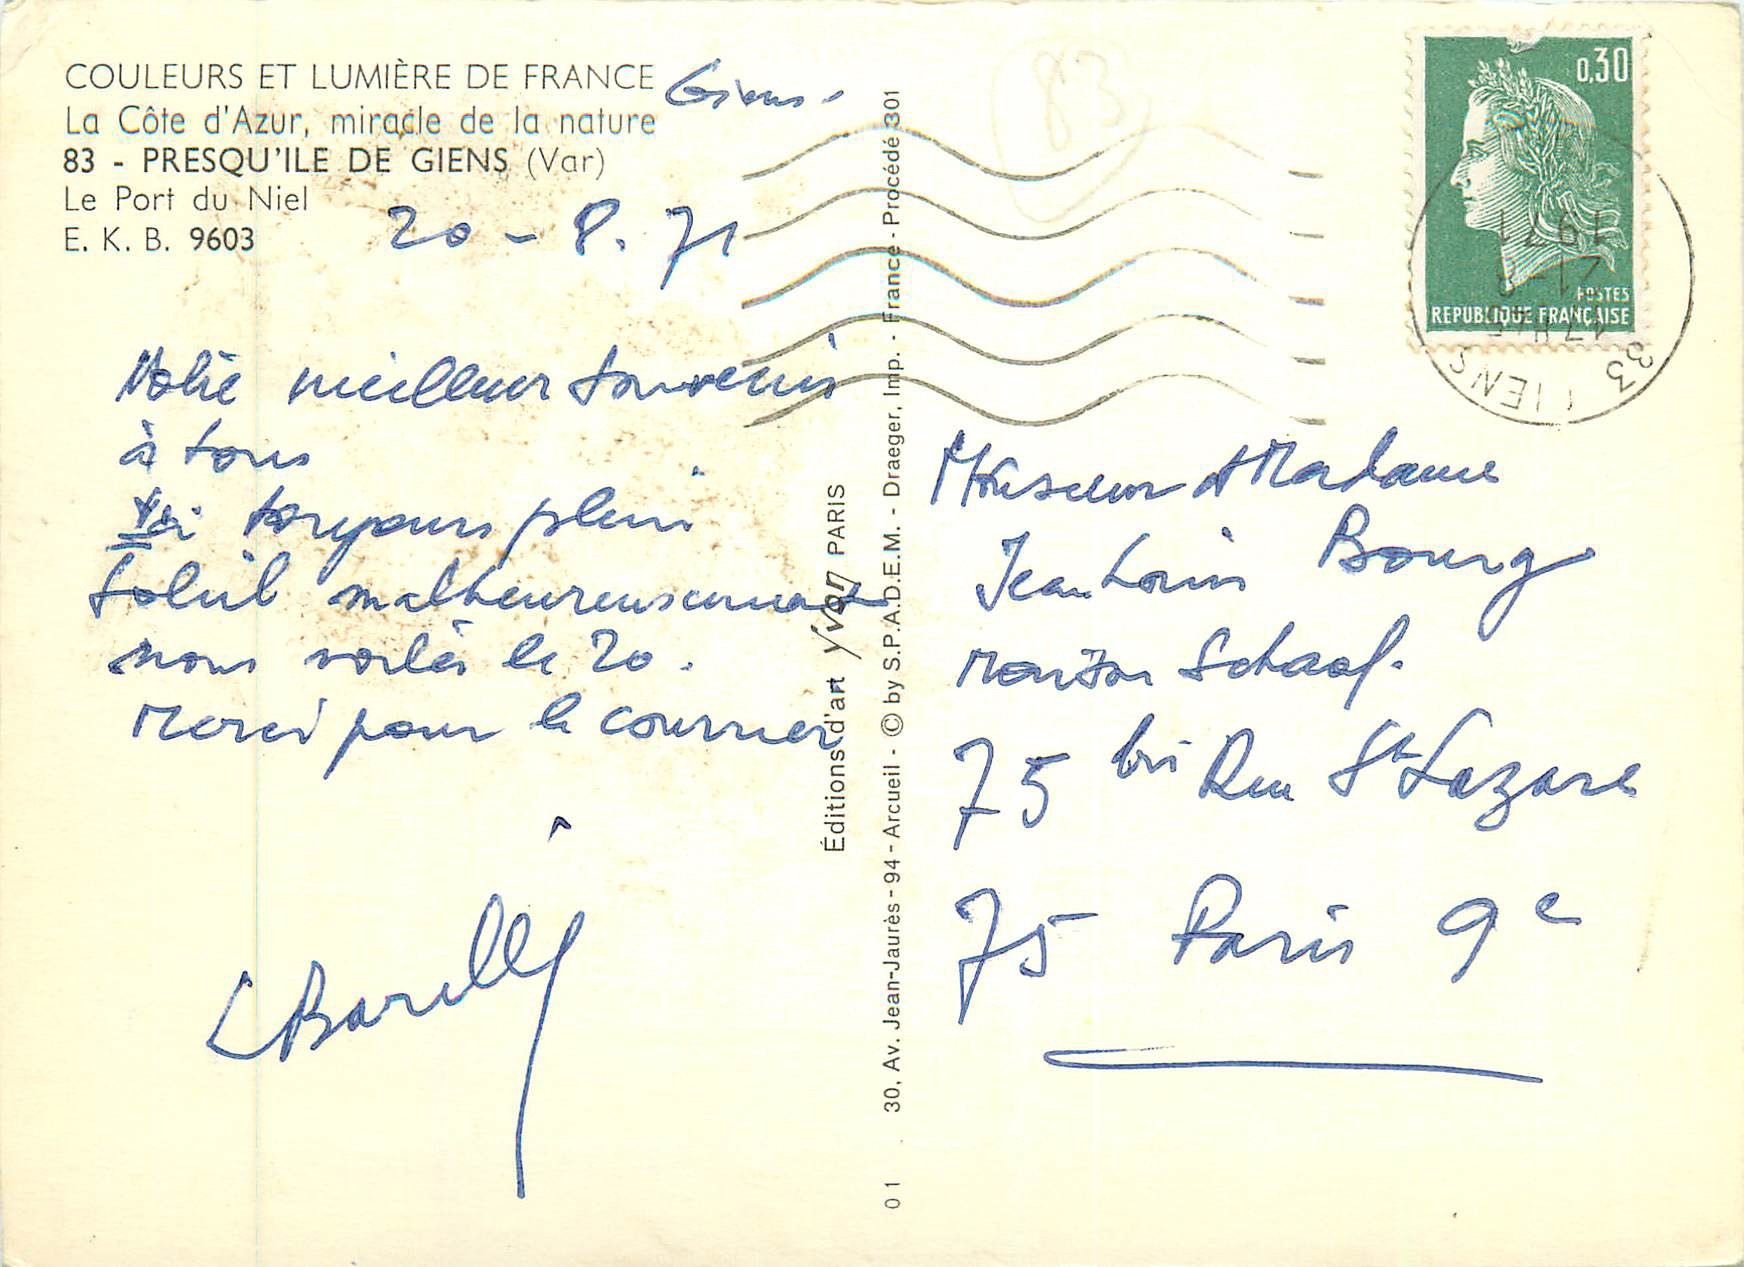 COULEURS ET LUMIÈRE DE FRANCE
La Côte d'Azur, miracle de la nature
83 - PRESQU'ILE DE GIENS (Var)
Le Port du Niel
E. K. B. 9603
Giens.
20 - 8. 71
Notre meilleur souvenir
à tous
Ici toujours plein
soleil malheureusement
nous voilà le 20.
Merci pour le courrier
Éditions d'art Yvon PARIS
01 30, Av. Jean-Jaurès - 94 - Arcueil - © by S.P.A.D.E.M. - Draeger, Imp. - France - Procédé 301
83
0,30
POSTES
REPUBLIQUE FRANÇAISE
1971
21-8
83 GIENS
Monsieur et Madame
Jean Louis Bourg
75 bis Rue St Lazare
75 Paris 9e